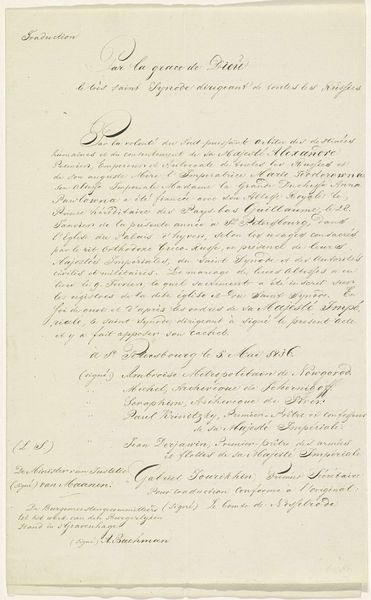 Traduction
Par la grace de Dieu
le très saint Synode dirigeant de toutes les Russies
Par la volonté du tout puissant arbitre des destinées
humaines et du consentement de Sa Majesté Alexandre
Premier, Empereur et Autocrate de toutes les Russies et
de son auguste Mère l'Impératrice Marie Féodorowna
Son Altesse Impériale Madame la Grande Duchesse Anna
Pawlowna a été fiancée avec son Altesse Royale le
Prince héréditaire des Pays bas Guillaume, le 28
Janvier de la présente année à St. Petersbourg, dans
l'Eglise du Palais d'hyver, selon les usages consacrés
par le rit orthodoxe Greco-Russe, en présence de Leurs
Majestés Impériales, du Saint Synode et des autorités
civiles et militaires. Le mariage de Leurs Altesses a eu
lieu le 9 Février, lequel sacrement a été inscrit dans
les registres de la dite église et du Saint Synode. En
foi de quoi et d'après les ordres de sa Majesté Impé-
riale, le Saint Synode dirigeant a signé le présent acte
et y a fait apposer son cachet.
à St. Petersbourg le 5 Mai 1816
(signé) Ambroise Metropolitain de Nowgorod
" Michel, Archevêque de Tchernigoff
" Seraphim, Archevêque de Twer
" Paul Krinitzky, Premier Prêtre et confesseur
de sa Majesté Impériale
" Jean Derjawin, Premier prêtre des armées
et flottes de sa Majesté Impériale
(L. S.)
Gabriel Premier Sécrétaire
De Minister van Justitie
(signé) van Maanen
Pour traduction conforme à l'original
(Signé) Le Comte de Nesselrode
tot het werk van den Burgerlijken
Stand in s'Gravenhage
(signé) A Bachman